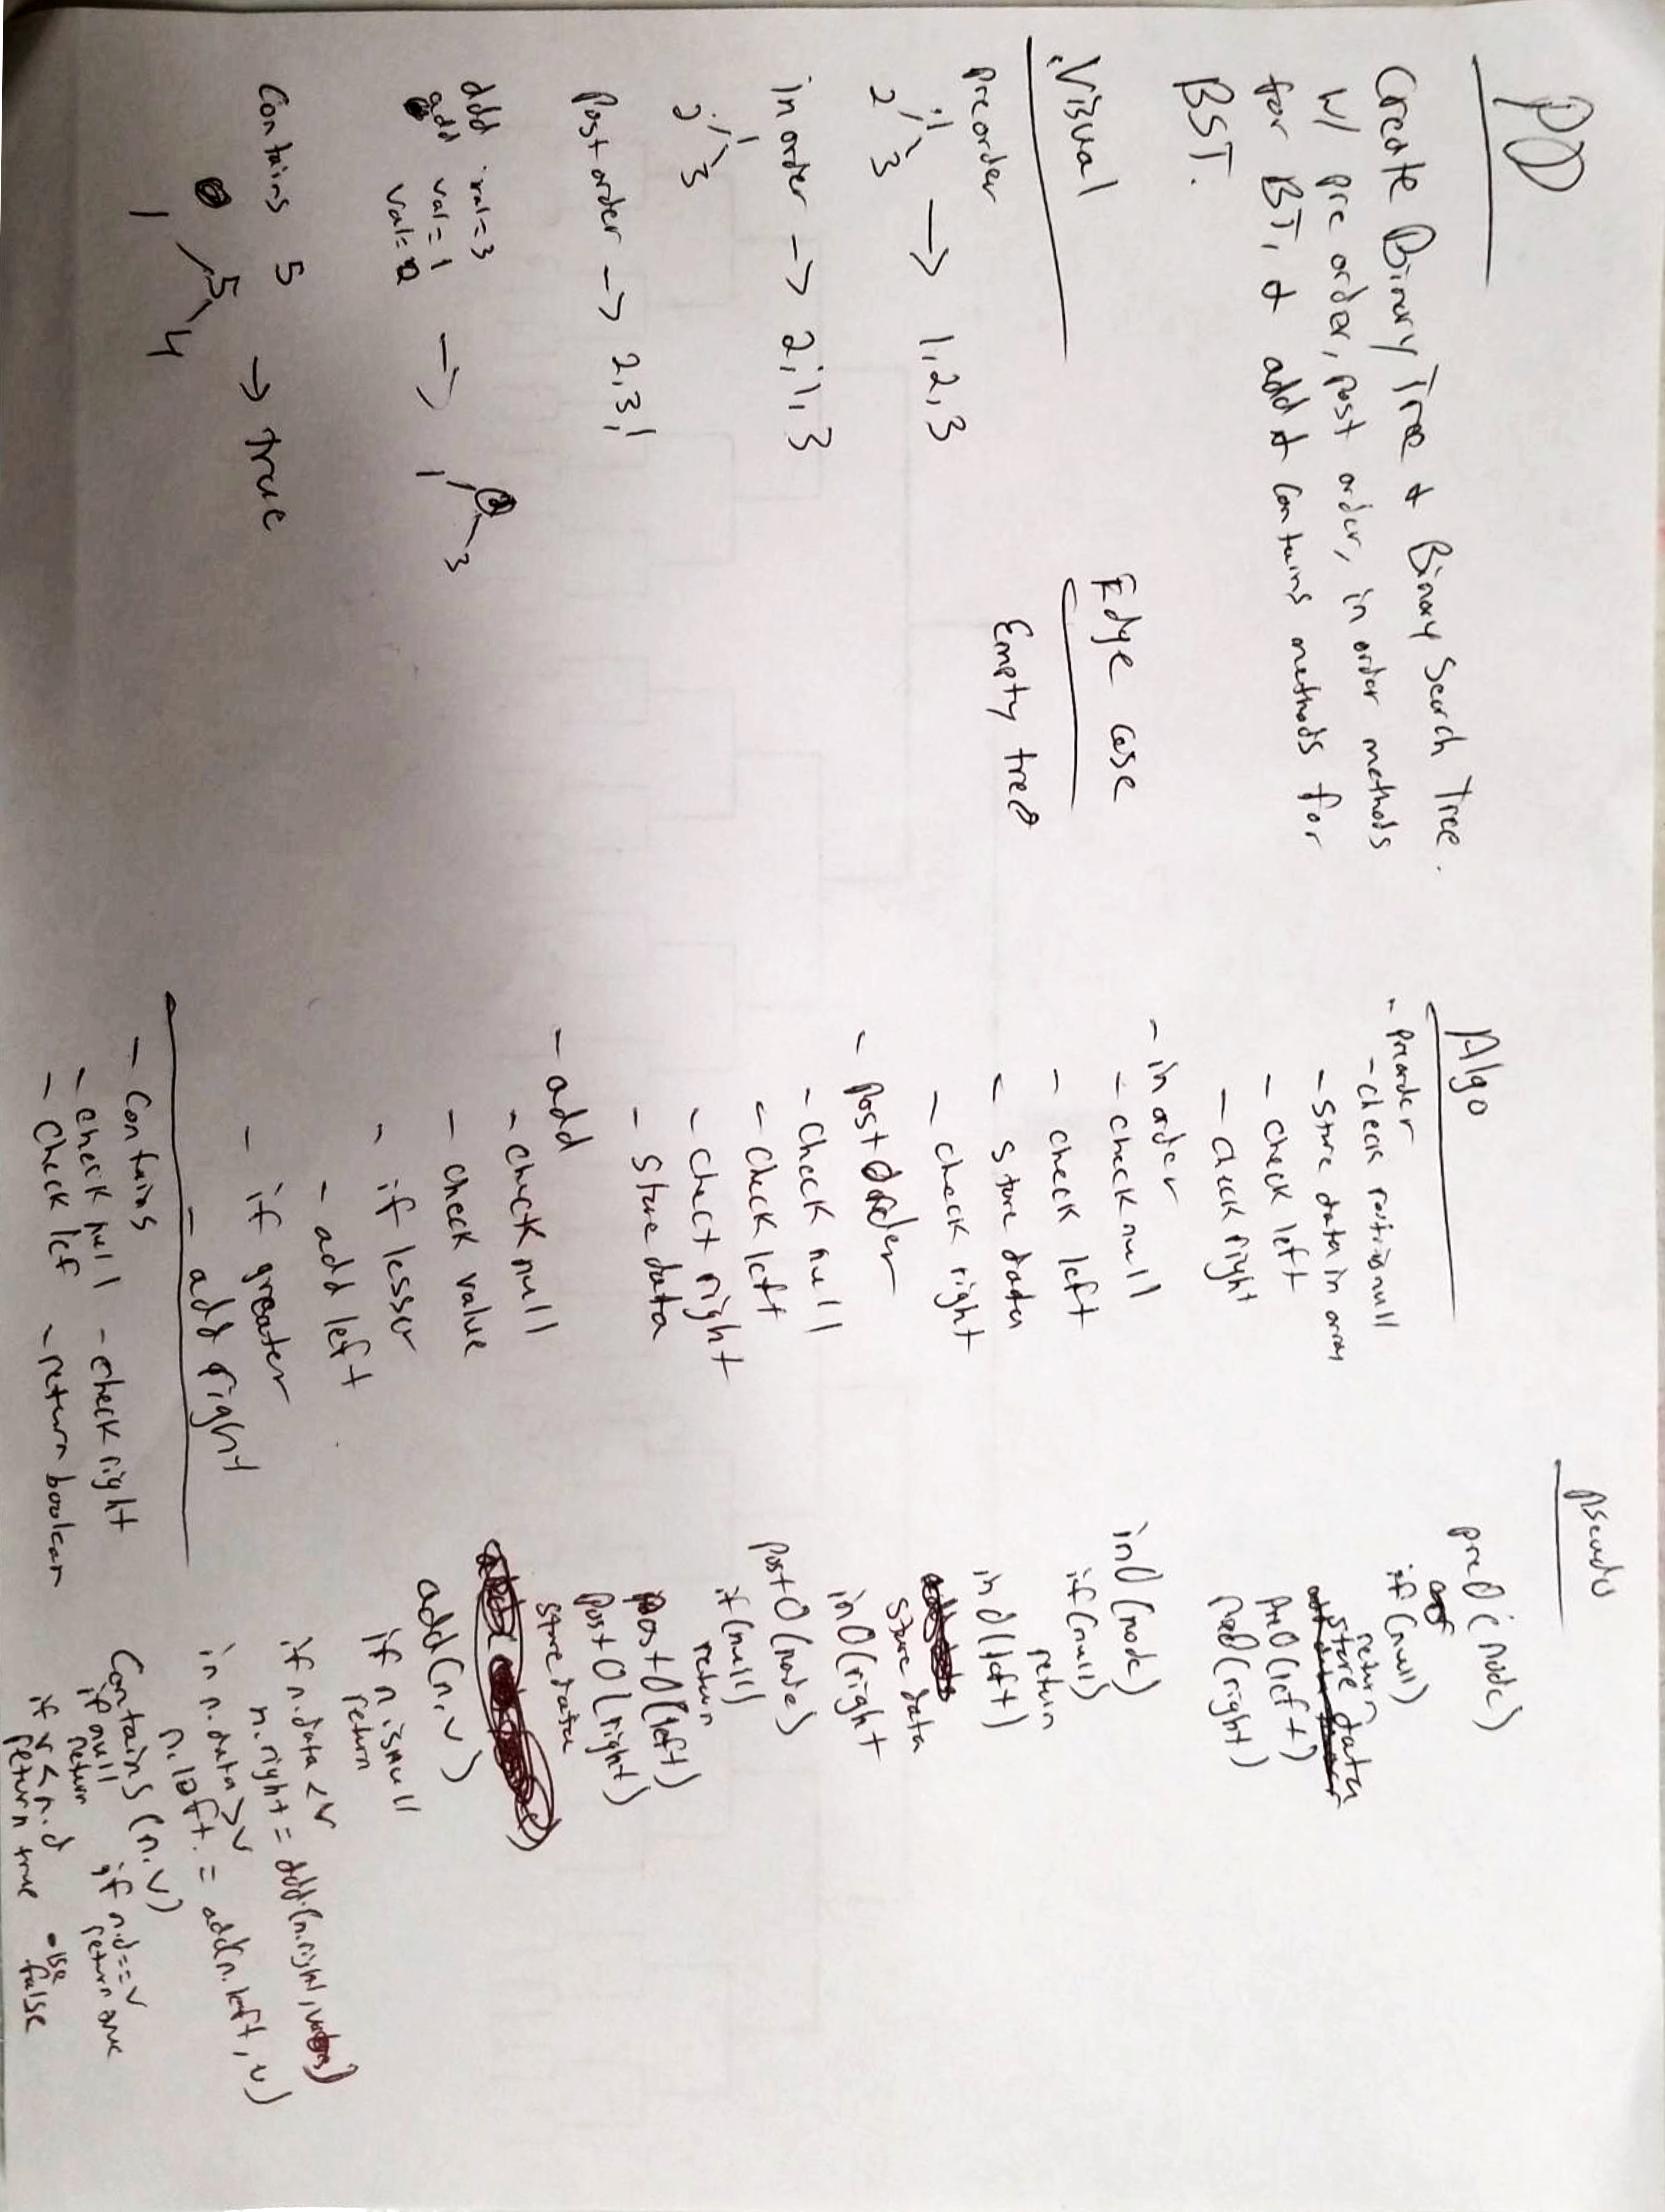 PD
Create Binary Tree & Binary Search Tree.
w/ pre order, post order, in order methods
for BT, & add & contains methods for
BST.
Visual
Pre order
1
2 3 -> 1,2,3
in order -> 2,1,3
1
2 3
Post order -> 2,3,1
add val=3
add val=1
val=2 ->
2
1 3
Contains 5 -> true
5
1 4
Edge case
Empty tree
Algo
- preorder
- check null
- store data in array
- check left
- check right
- in order
- check null
- check left
- store data
- check right
- post order
- check null
- check left
- check right
- store data
- add
- check null
- check value
- if lesser
- add left
- if greater
- add right
- Contains
- check null - check right
- check lef - return boolean
Pseudo
preO(node)
if(null)
return
store data
preO(left)
preO(right)
inO(node)
if(null)
return
inO(left)
store data
inO(right
postO(node)
if(null)
return
postO(left)
postO(right)
store data
add(n,v)
if n.isnull
return
if n.data < v
n.right = add(n.right,
in n.data > v
n.left. = add(n.left, v)
Contains (n.v)
if null if n.d==v
return return
if v < n.d else
return true false